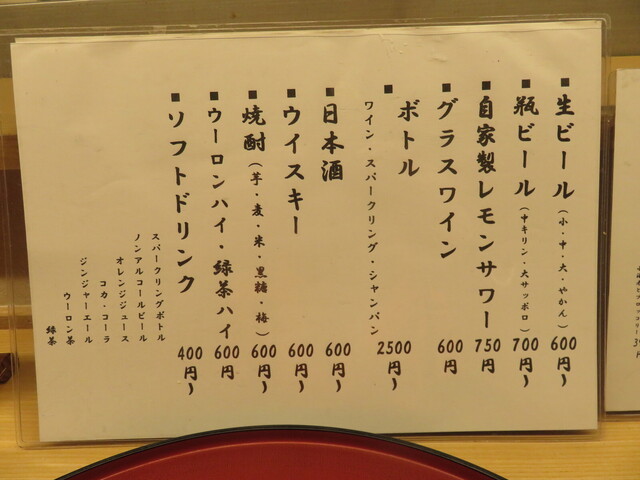 ■生ビール(小・中・大・やかん) 600円~
■瓶ビール(中キリン・大サッポロ) 700円~
■自家製レモンサワー 750円
■グラスワイン 600円
■ボトル 2500円~
ワイン・スパークリング・シャンパン
■日本酒 600円~
■ウイスキー 600円~
■焼酎(芋・麦・米・黒糖・梅) 600円~
■ウーロンハイ・緑茶ハイ 600円
■ソフトドリンク 400円~
スパークリングボトル
ノンアルコールビール
オレンジジュース
コカ・コーラ
ジンジャーエール
ウーロン茶
緑茶